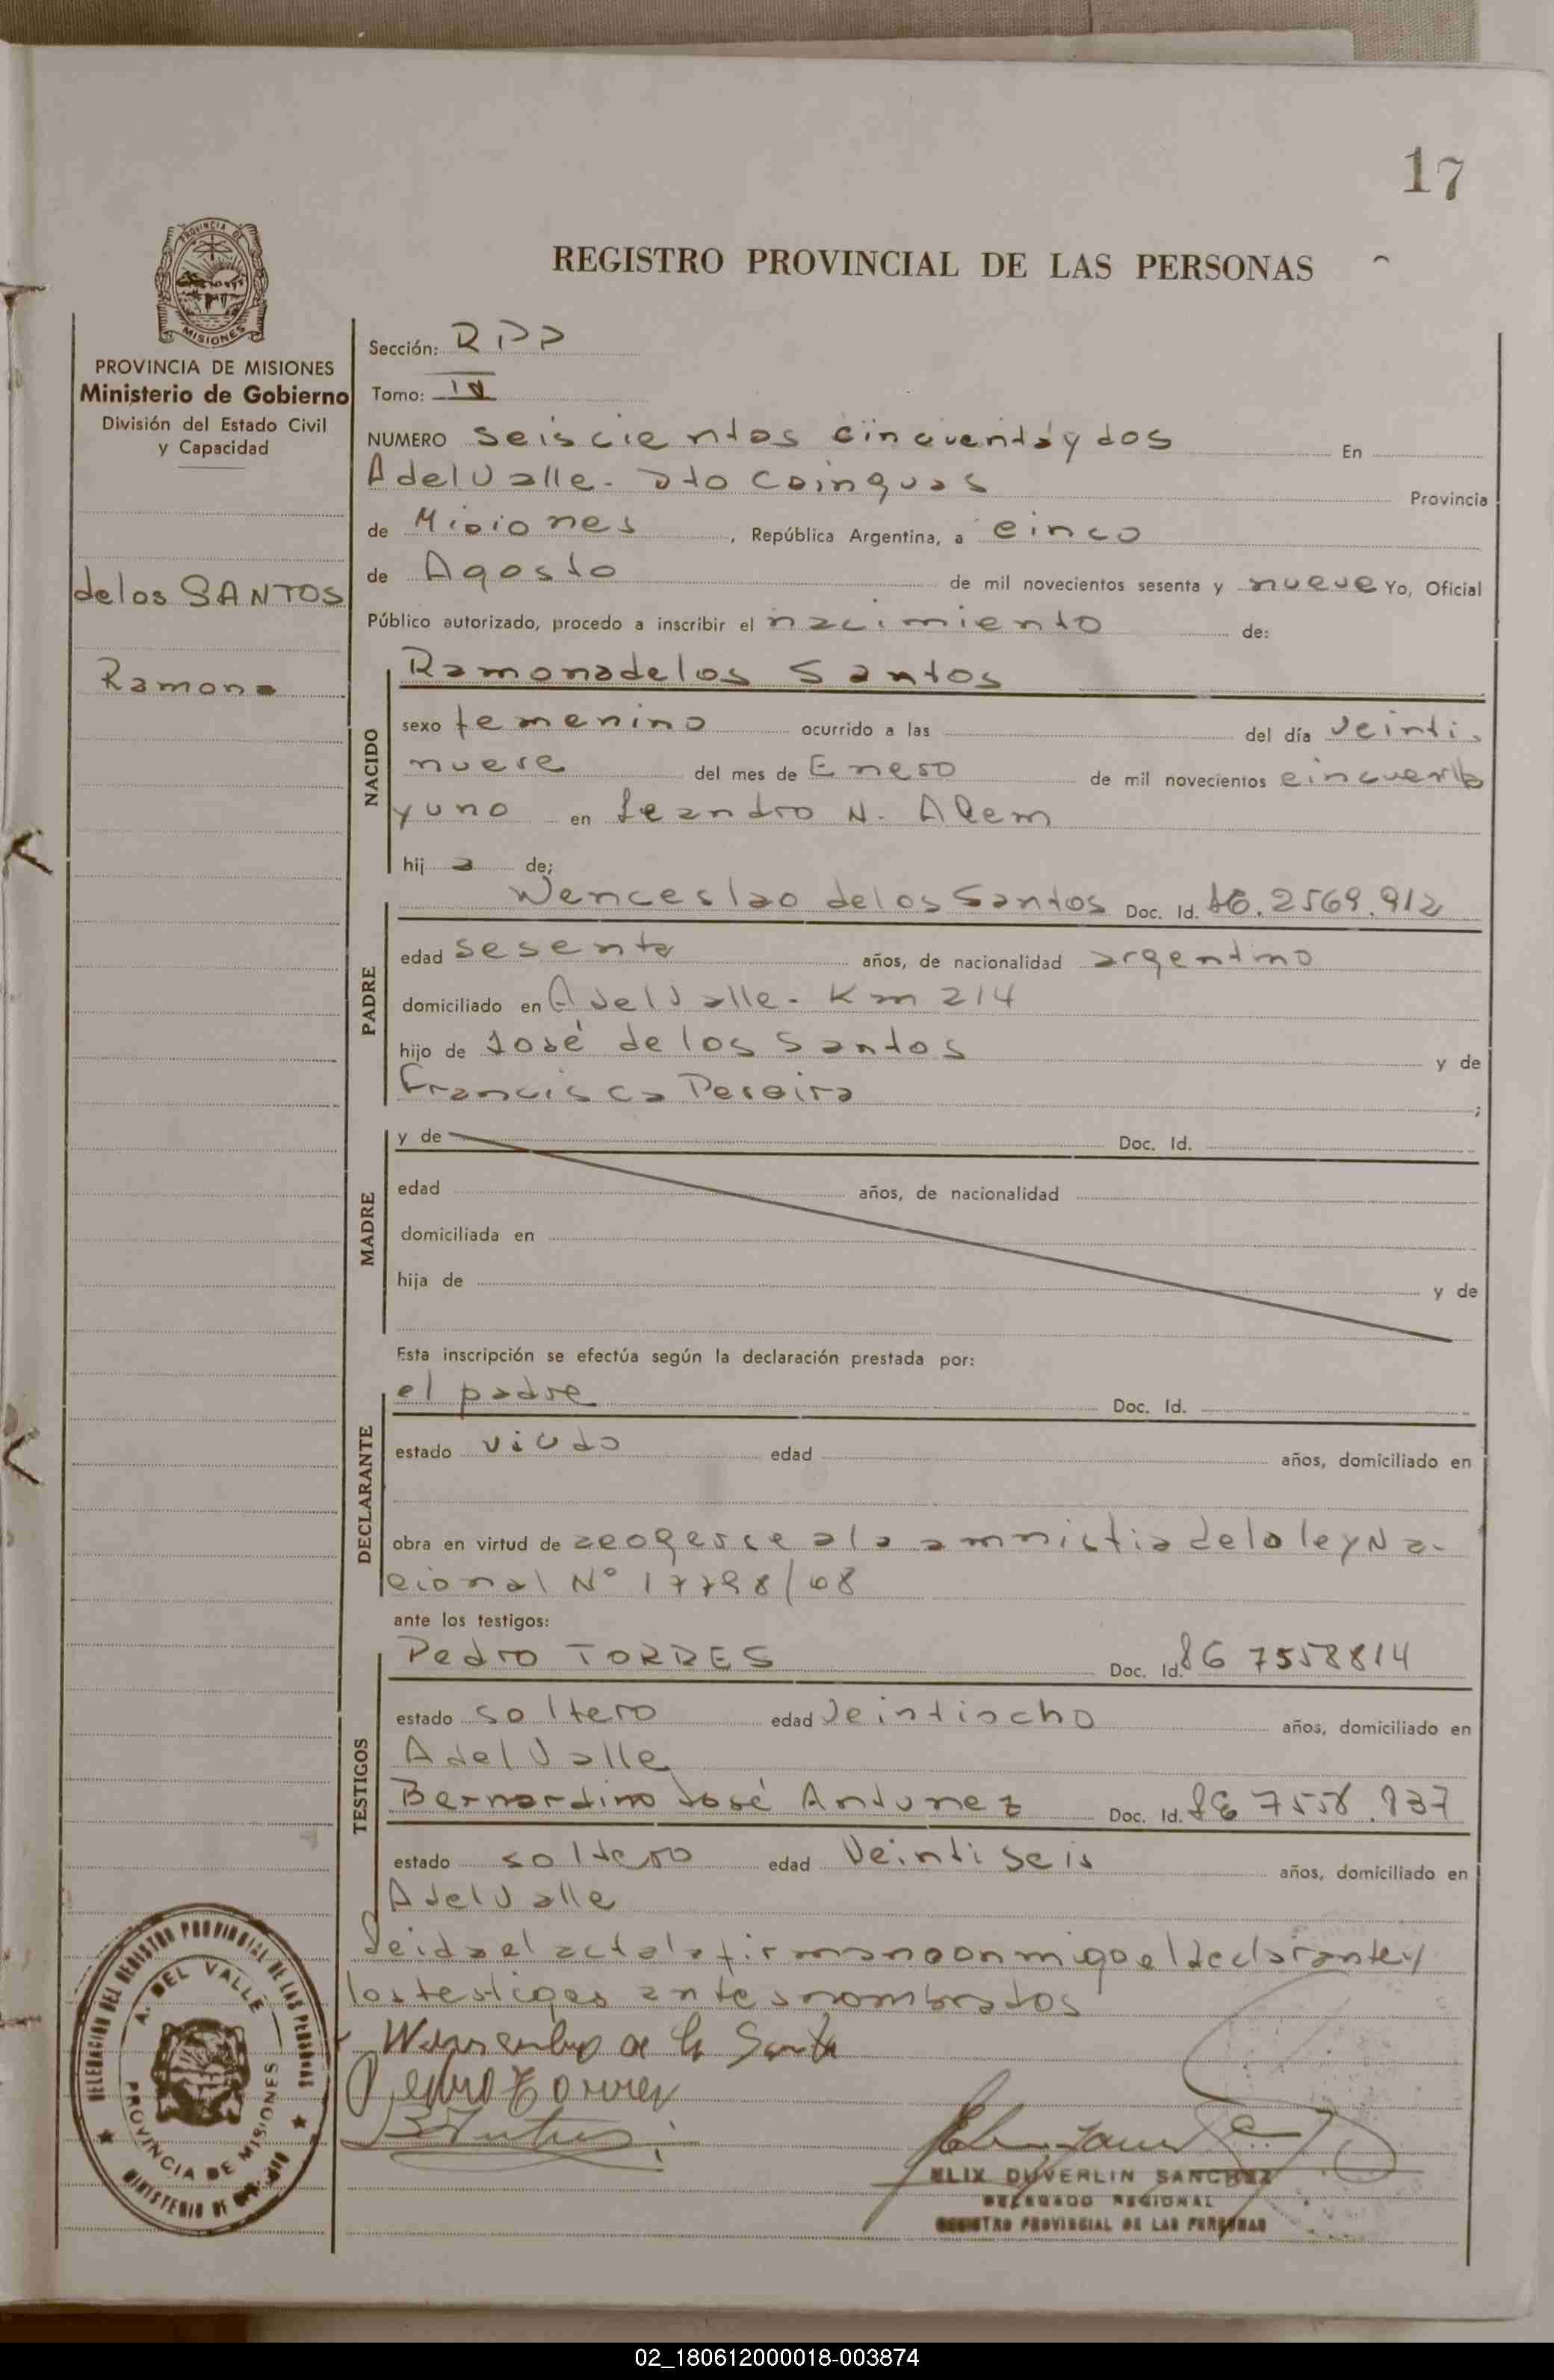 17
REGISTRO PROVINCIAL DE LAS PERSONAS
PROVINCIA DE
MISIONES
PROVINCIA DE MISIONES
Ministerio de Gobierno
División del Estado Civil
y Capacidad
de los SANTOS
Ramona
Sección: RPP
Tomo:
NUMERO seiscientos cincuenta y dos En
A del Valle - Dto Cainguas Provincia
de Misiones, República Argentina, a cinco
de Agosto de mil novecientos sesenta y nueve Yo, Oficial
Público autorizado, procedo a inscribir el nacimiento de:
NACIDO
Ramona de los Santos
sexo femenino ocurrido a las del día veinti
nueve del mes de Enero de mil novecientos cincuenta
y uno en Leandro N. Alem
hij a de;
PADRE
Wenceslao de los Santos Doc. Id. 2569.912
edad sesenta años, de nacionalidad argentino
domiciliado en A del Valle - Km 214
hijo de José de los Santos y de
Francisca Pereira ;
MADRE
y de Doc. Id.
edad años, de nacionalidad
domiciliada en
hija de y de
Esta inscripción se efectúa según la declaración prestada por:
DECLARANTE
el padre Doc. Id.
estado viudo edad años, domiciliado en
obra en virtud de acogerse a la amnistia de la ley Na-
cional Nº 17798/68
ante los testigos:
TESTIGOS
Pedro TORRES Doc. Id. 7558814
estado soltero edad Veintiocho años, domiciliado en
A del Valle
Bernardino José Antunez Doc. Id. 7558.937
estado soltero edad Veintiseis años, domiciliado en
A del Valle
Leida el acta la firman conmigo el declarante y
los testigos antes nombrados
Pedro Torres
DELEGACION DEL REGISTRO PROVINCIAL DE LAS PERSONAS
A. DEL VALLE
PROVINCIA DE MISIONES
MINISTERIO DE
ELIX DUVERLIN SANCHEZ
DELEGADO REGIONAL
REGISTRO PROVINCIAL DE LAS PERSONAS
02_180612000018-003874